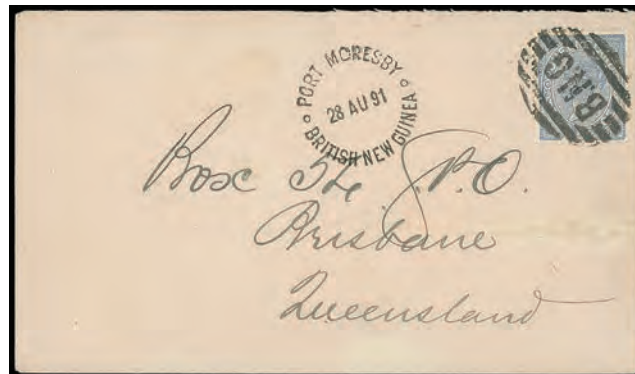 PORT MORESBY
28 AU 91
BRITISH NEW GUINEA
B.N.G.
Box 54 G.P.O.
Brisbane
Queensland